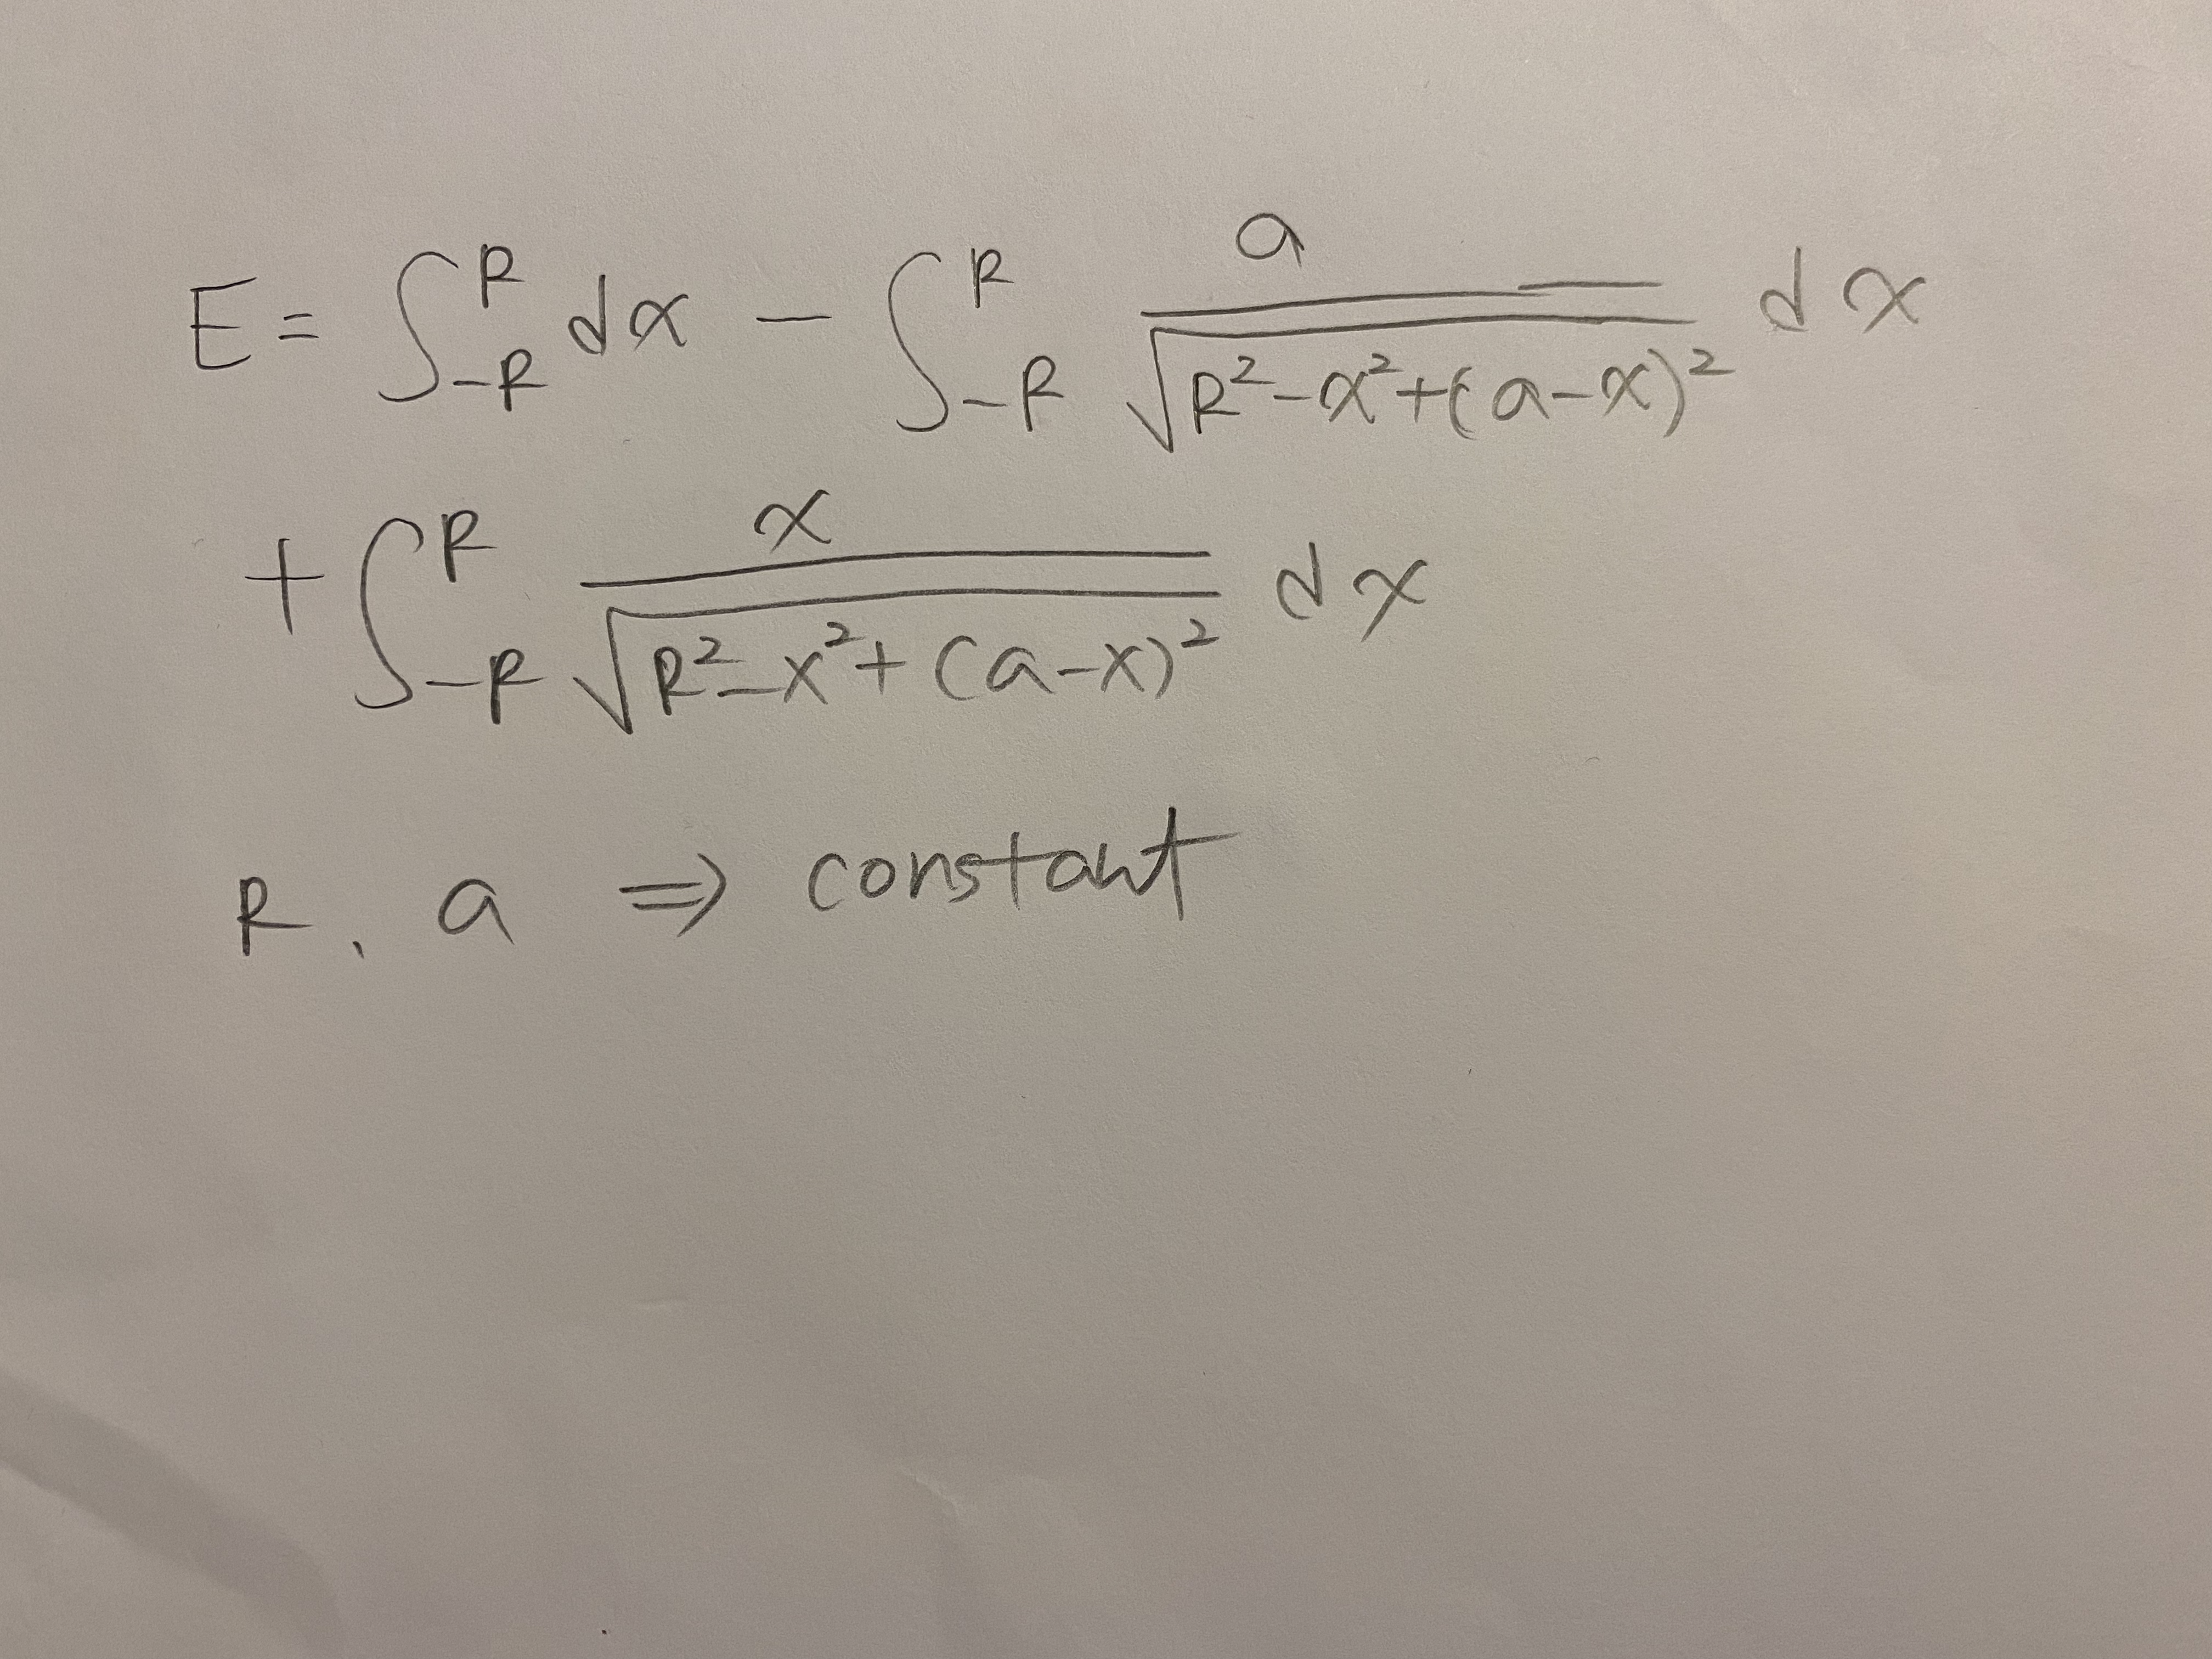 E = ∫_{-R}^{R} dx - ∫_{-R}^{R} \frac{a}{\sqrt{R^2-x^2+(a-x)^2}} dx
+ ∫_{-R}^{R} \frac{x}{\sqrt{R^2-x^2+(a-x)^2}} dx
R, a ⇒ constant